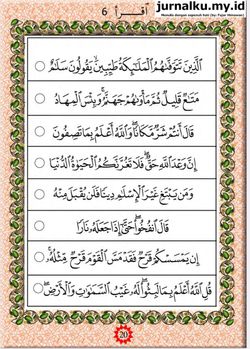 jurnalku.my.id
اقرأ 6
الَّذِينَ تَتَوَفَّاهُمُ الْمَلَائِكَةُ طَيِّبِينَ يَقُولُونَ سَلَامٌ
مَتَاعٌ قَلِيلٌ ثُمَّ مَأْوَاهُمْ جَهَنَّمُ وَبِئْسَ الْمِهَادُ
قَالَ أَنْتُمْ شَرٌّ مَكَانًا وَاللَّهُ أَعْلَمُ بِمَا تَصِفُونَ
إِنَّ وَعْدَ اللَّهِ حَقٌّ فَلَا تَغُرَّنَّكُمُ الْحَيَوٰةُ الدُّنْيَا
وَمَنْ يَبْتَغِ غَيْرَ الْإِسْلَامِ دِينًا فَلَنْ يُقْبَلَ مِنْهُ
قَالَ انْفُخُوا حَتَّى إِذَا جَعَلَهُ نَارًا
إِنْ يَمْسَسْكُمْ قَرْحٌ فَقَدْ مَسَّ الْقَوْمَ قَرْحٌ مِثْلُهُ
قُلِ اللَّهُ أَعْلَمُ بِمَا لَبِثُوا لَهُ غَيْبُ السَّمٰوٰتِ وَالْأَرْضِ
20